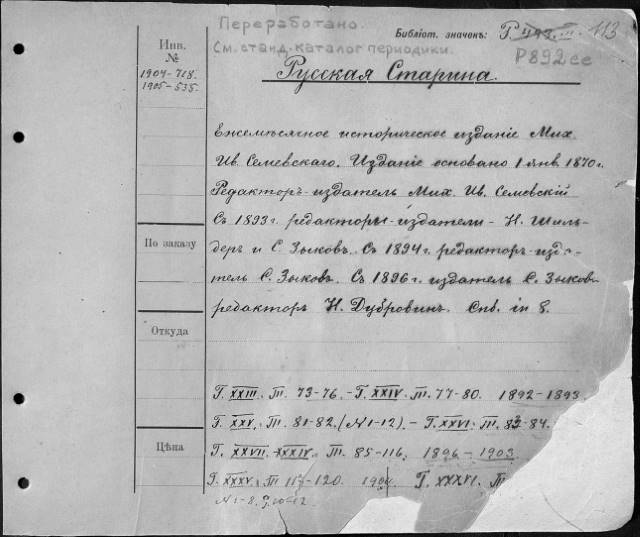 Переработано.
См. станд. каталог периодики.
Библіот. значекъ: Р 113
Р892се
Инв.
№
1904-718.
1905-535.
Русская Старина.
Ежемѣсячное историческое изданіе Мих.
Ив. Семевскаго. Изданіе основано 1 янв. 1870 г.
Редакторъ-издатель Мих. Ив. Семевскій
С 1893 г. редакторы-издатели - Н. Шиль-
деръ и С. Зыковъ. Съ 1894 г. редакторъ-изда-
По заказу
тель С. Зыковъ. Съ 1896 г. издатель С. Зыковъ
редакторъ Н. Дубровинъ. Спб. in 8.
Откуда
Г. XXIII. Т. 73-76. - Г. XXIV. Т. 77-80. 1892-1893.
Г. XXV. Т. 81-82. (N 1-12). - Г. XXVI. Т. 83-84.
Цѣна
Г. XXVII-XXXIV. Т. 85-116. 1896-1903.
Г. XXXV. Т 117-120. 1904 Г. XXXVI. Т
N 1-8.